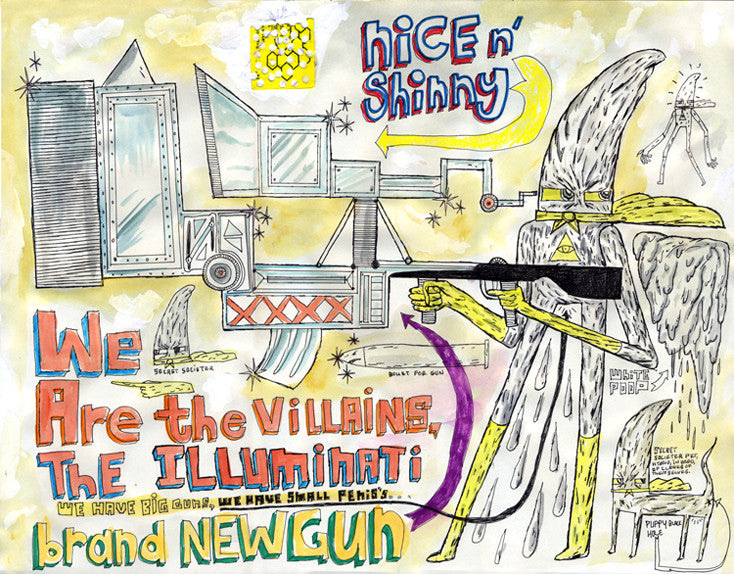 NiCE n'
Shinny
We
Are the VILLAINS,
The ILLUMINATI
WE HAVE BIG GUNS, WE HAVE SMALL PENIS'S...
brand NEW GUN
SECRET SOCIETER
BULLET FOR GUN
WHITE
POOP
SECRET
SOCIETER PET,
THEMSELVES.
PUPPY
HOLE